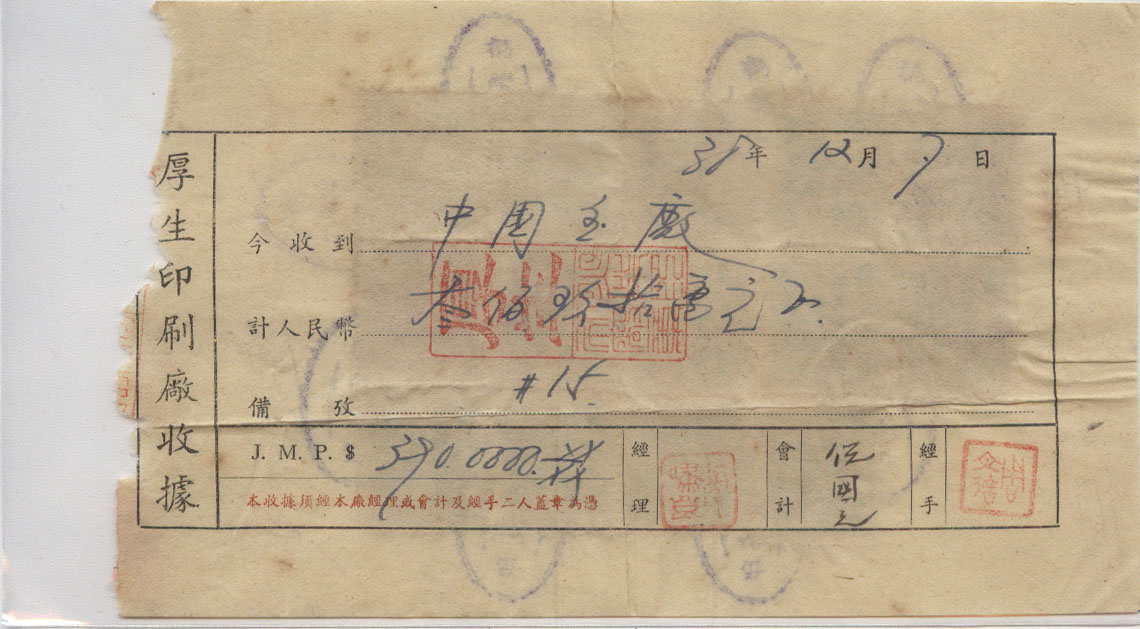 厚生印刷廠收據
38年 12月 7日
今收到 中國 廠
計人民幣 叁佰玖拾萬元正
備攷 #15.
J. M. P. $ 390.0000.
經理 會計 伍國 經手
本收據須經本廠經理或會計及經手二人蓋章為憑